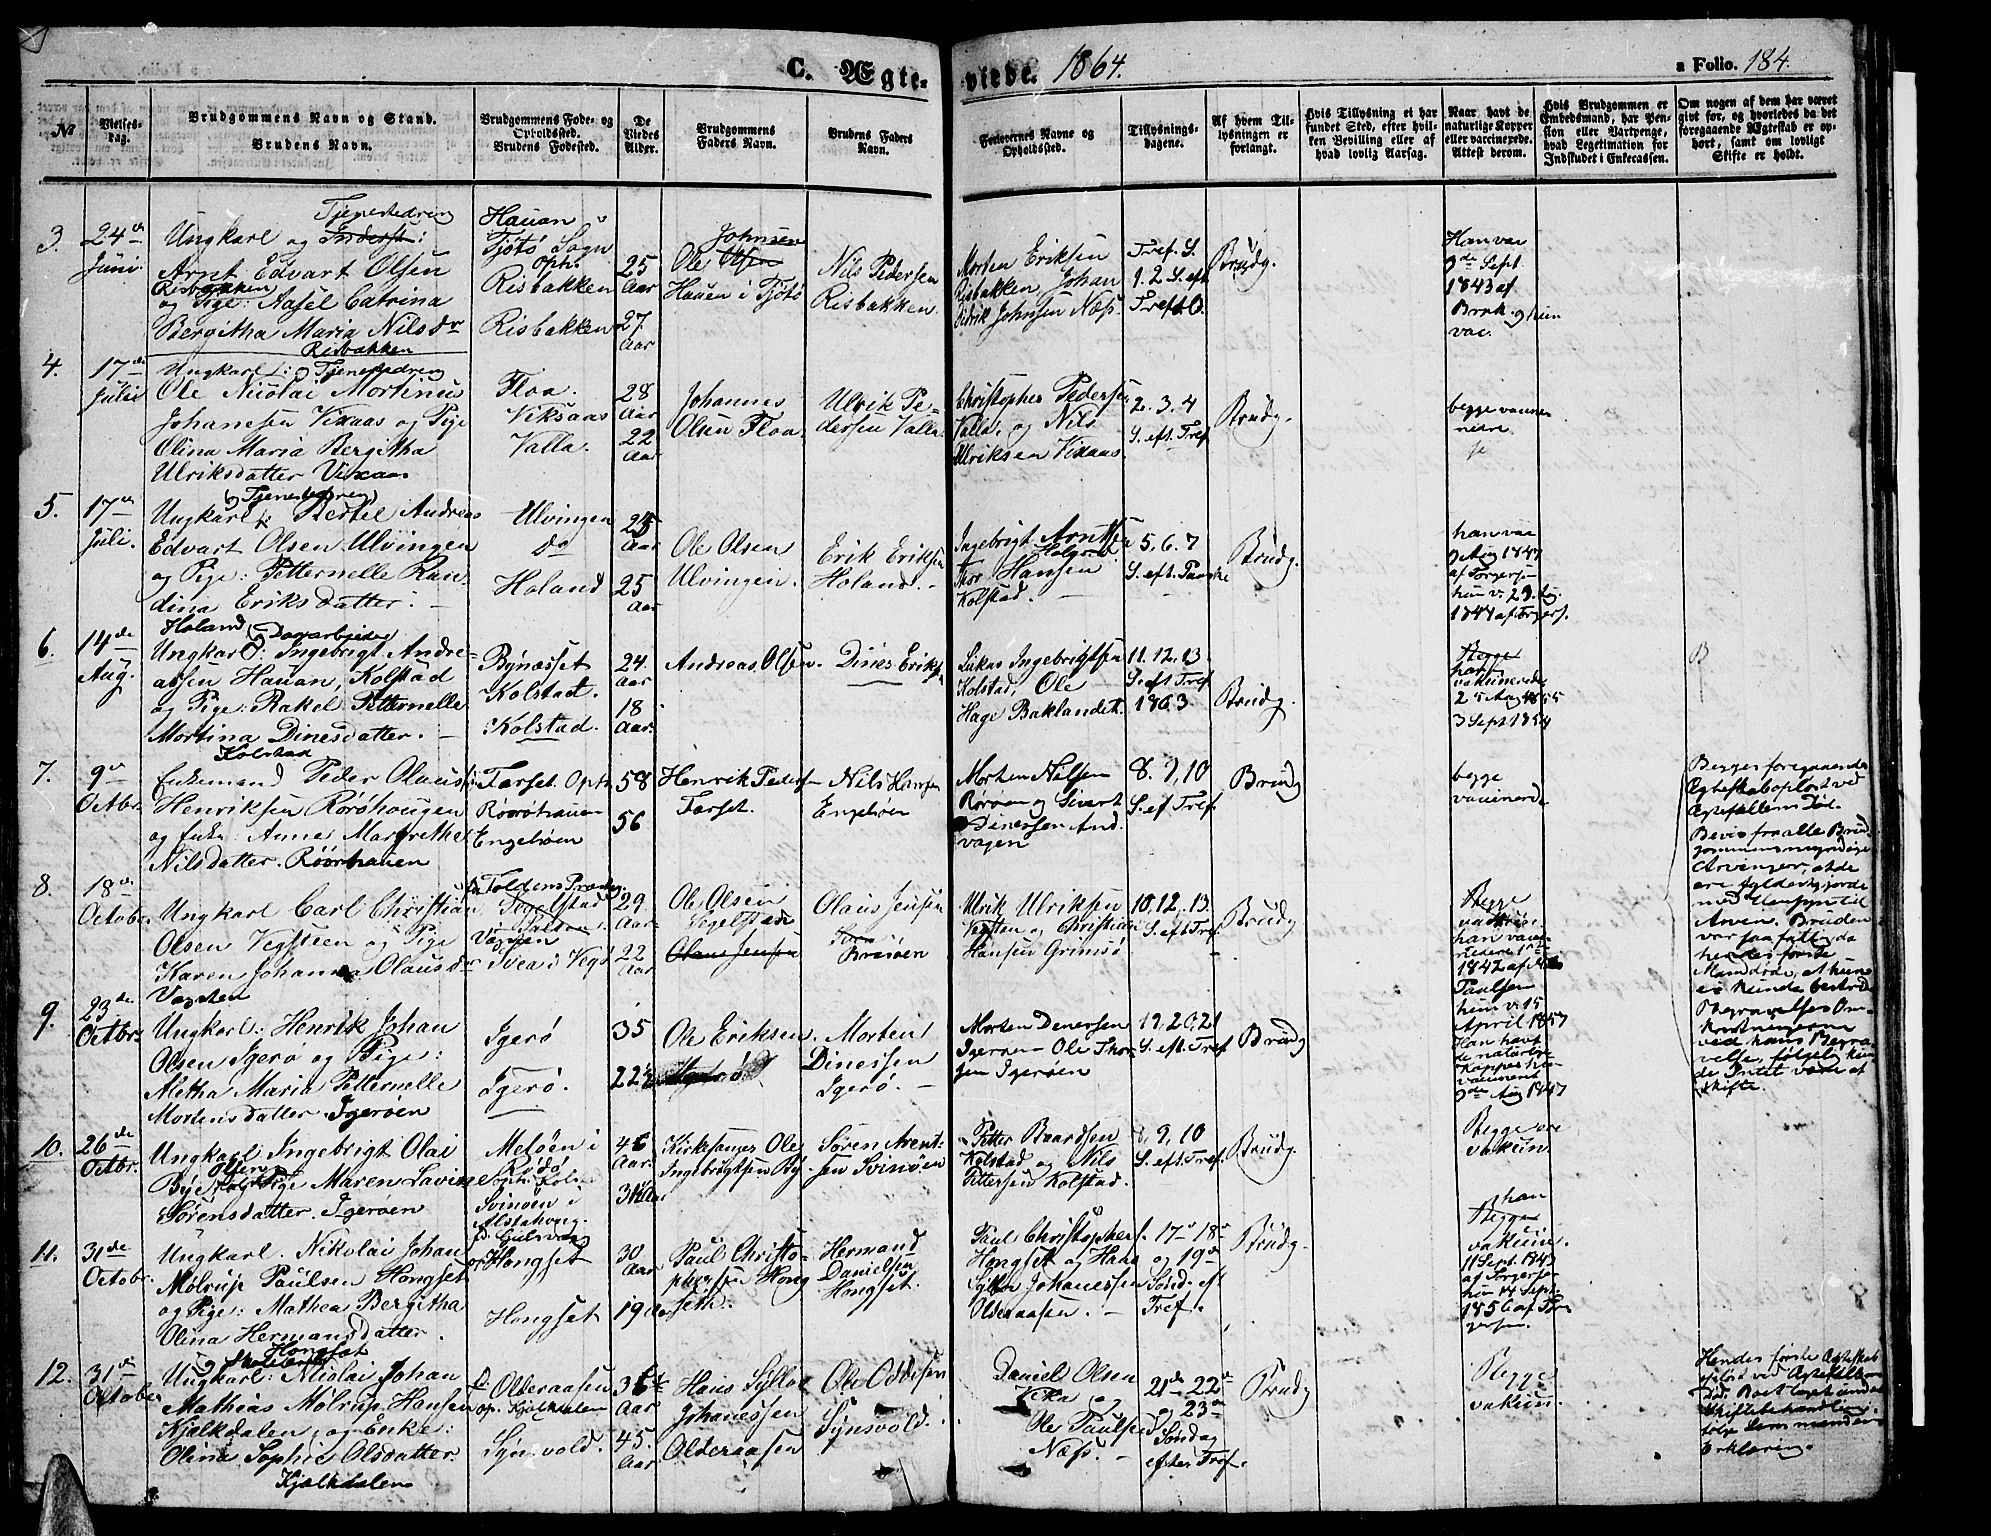 C. Ægte- vielde. 1864. a Folio. 184.
№
Vielses-
dag.
Brudgommens Navn og Stand.
Brudens Navn.
Brudgommens Føde- og
Opholdssted.
Brudens Fødested.
De
Viedes
Alder.
Brudgommens
Faders Navn.
Brudens Faders
Navn.
Forlovernes Navne og
Opholdssted.
Tillysnings-
dagene.
Af hvem Til-
lysningen er
forlangt.
Hvis Tillysning ei har
fundet Sted, efter hvil-
ken Bevilling eller af
hvad lovlig Aarsag.
Naar havt de
naturlige Kopper
eller vaccinerede.
Attest derom.
Hvis Brudgommen er
Embedsmand, har Pen-
sion eller Vartpenge,
hvad Legetimation for
Indskudet i Enkecassen.
Om nogen af dem har været
gift før, og hvorledes da det
foregaaende Ægteskab er op-
hørt, samt om lovligt
Skifte er holdt.
3.
24de
Juni.
Tjenestedreng
Ungkarl og Inderst:
Arnt Edvart Olsen
Risbakken
og Pige: Aasel Catrina
Bergitha Maria Nilsdr
Risbakken
Hauan
Tjøtø Sogn
Oph.
Risbakken
Risbakken
25
Aar
27
Aar
Johnsen
Ole Olsen
Hauen i Tjøtø
Nils Pedersen
Risbakken.
Morten Eriksen
Risbakken, Johan
Didrik Johnsen Næss.
Tref. S.
1. 2. S. eft
Tref.
Brudg.
Han vac
9de Sept.
1843 af
Brok. og hun
vac.
4.
17de
Juli
Ungkarl: og Tjenestedreng
Ole Nicolai Mortinus
Johansen Vixaas og Pige
Olina Maria Bergitha
Ulriksdatter Vixaas
Floa.
Viksaas
Valla.
28
Aar
22
Aar
Johannes
Olsen Floa.
Ulrik Pe-
dersen Valla.
Christopher Pedersen
Valla, og Nils
Ulriksen Vixaas.
2. 3. 4
S. eft. Tref.
Brudg.
begge vaccine-
rede.
5.
17de
Juli.
(Tjenestedreng)
Ungkarl: Bertel Andreas
Edvart Olsen Ulvingen
og Pige: Petternelle Ran-
dina Eriksdatter. —
Holand
Ulvingen
do
Holand
25
Aar
25
Aar
Ole Olsen
Ulvingen.
Erik Eriksen
Holand. —
Ingebrigt Arntsen
Holand
Thor Hansen
Kolstad. —
5. 6. 7
S. eft. Paaske
Brudg.
han vac
9 Aug 1847
af Torgersen
hun v. 29. Aug.
1844 af Torgers.
6.
14de
Aug.
Dagarbeider
Ungkarl: Ingebrigt Andre-
assen Hauan, Kolstad
og Pige: Rakel Petternelle
Mortina Dinesdatter. —
Kolstad
Bynæsset
Kolstad.
Kolstad.
24.
Aar
18
Aar.
Andreas Olsen.
Dines Eriksen
Lukas Ingebrigtsen
Kolstad, Ole
Hage Baklandet.
11. 12. 13.
S. eft Tref
1863.
Brudg.
Begge
han
vakcinerede
25 Aug 1855
3 Sept 1854
B
7.
9de
Octbr.
Enkemand Peder Olaus
Henriksen Rørøhougen
og Enke: Anne Margrethe
Nilsdatter. Røørhauen
Tarset. Oph.
Rørøhauen
Engehøen
58
56
Henrik Peders-
Tarset.
Nils Hansen
Engehøen
Morten Nilsen
Rørøen og Sivert
Dinessen And-
vagen
8. 9. 10
S. ef. Tref.
Brudg
begge
vaccinerede
Begges foregaaende
Ægteskab opløst ved
Ægtefællens Død.
Bevis fra alle Brud-
gommens myndige
Arvinger, at de
ere fyldestgjorde
med Hensyn til
Arven. Bruden
var saa fattig da
hendes første
Mand døde, at hun
ei kunde bestride
Begravelses Om-
kostningerne
ved hans Begra-
velse, følgelig kun-
de Intet være at
skifte.
8.
18de
October
Ungkarl Carl Christian
Olsen Vegsteen og Pige
Karen Johanna Olausdr
Segelstad
Ivea i Vegø
29
Aar
22
Aar
Ole Olsen
Segelstad
Olaus Jensen
Olaus Jensen
Ulrik Ulriksen
Vegsten og Christian
Hansen Grimsø
10. 12. 13.
S. eft Tref.
Brudg
Begge
han vacci-
1842 af
Paulsen
hun v. 15
April 1857
9.
23de
Octbr.
Ungkarl: Henrik Johan
Olsen Igerø og Pige:
Aletha Maria Petternelle
Mortensdatter. Igerøen
Igerø
Igerø.
35
22
Ole Eriksen
Igerø
Morten
Dinessen
Igerø. —
Morten Denersen
Igerøen — Ole Thor-
sen Igerøen
19, 20, 21
S. eft. Tref
Brudg
Han havt
de naturlige
Kopper hun
vaccineret
9de Aug 1847
10.
26de
Octbr.
Ungkarl Ingebrigt Olai
Olsen
Bye Kols. Pige Maren Lavine
Sørensdatter. Igerøen
Meløen i
Rødø
oph. Kols.
Svinøen i
Alstahoug.
46
Aar.
31 Aar
Kirkesanger Ole
Ingebrigtsen By.
Søren Arent-
sen Svinøen
Petter Baardsen
Kolstad og Nils
Pettersen Kolstad.
8. 9. 10
S. eft. Tref.
Brudg.
Begge ere
vakcin.
11.
31de
Octobr.
Ungkarl. Nikolai Johan
Mølrup Paulsen Hongset
og Pige: Mathea Bergitha
Olina Hermansdatter.
Hongset
f. Gulsvaag
op Hongset
Hongset
30
Aar
19
Paul Christo-
phersen Hong-
seth.
Hermand
Danielsen
Hongset.
Paul Christophers.
Hongset og Hans
Sylten Johanessen
Olderaasen. —
17de 18de
og 19de
Sønd. eft
Tref.
Brudg.
han
Begge
vakcin.
11 Sept. 1843
af Torgersen
hun 14 Sept.
1856 af Tor-
gersen.
12.
31de
October
Ungkarl: Nicolai Johan
Mathias Mølrup Hansen
Kjølkdalen, og Enke:
Olina Sophie Olsdatter.
Kjølkdalen
Olderaasen
op. Kjølkdalen
Synsvold.
36
Aar
45.
Aar
Hans Sylten
Johanessen
Olderaasen
Ole Oddesen
Synsvold.
Daniel Olsen
og
Ole Paulsen
Næss. —
21de 22de
og 23de
Søndag
efter Tref.
Brudg
Begge
vakcin.
Hendes første Ægteskab
opløst ved Ægtefællens
Død. Boet taget under
Skiftebehandling
følge Lensmandens
Erklæring.